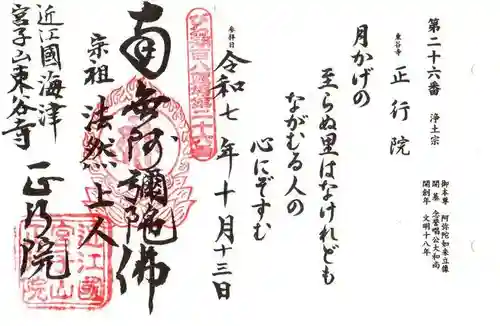 第二十六番 浄土宗
御本尊 阿弥陀如来立像
開基 念誉唱公大和尚
開創年 文明十八年
東谷寺 正行院
月かげの
至らぬ里はなけれども
ながむる人の
心にぞすむ
参拝日 令和七年十月十三日
びわ湖百八霊場第二十六番
南無阿弥陀佛
宗祖 法然上人
近江國海津
宮子山東谷寺 正行院
近江國
宮子山
正行院